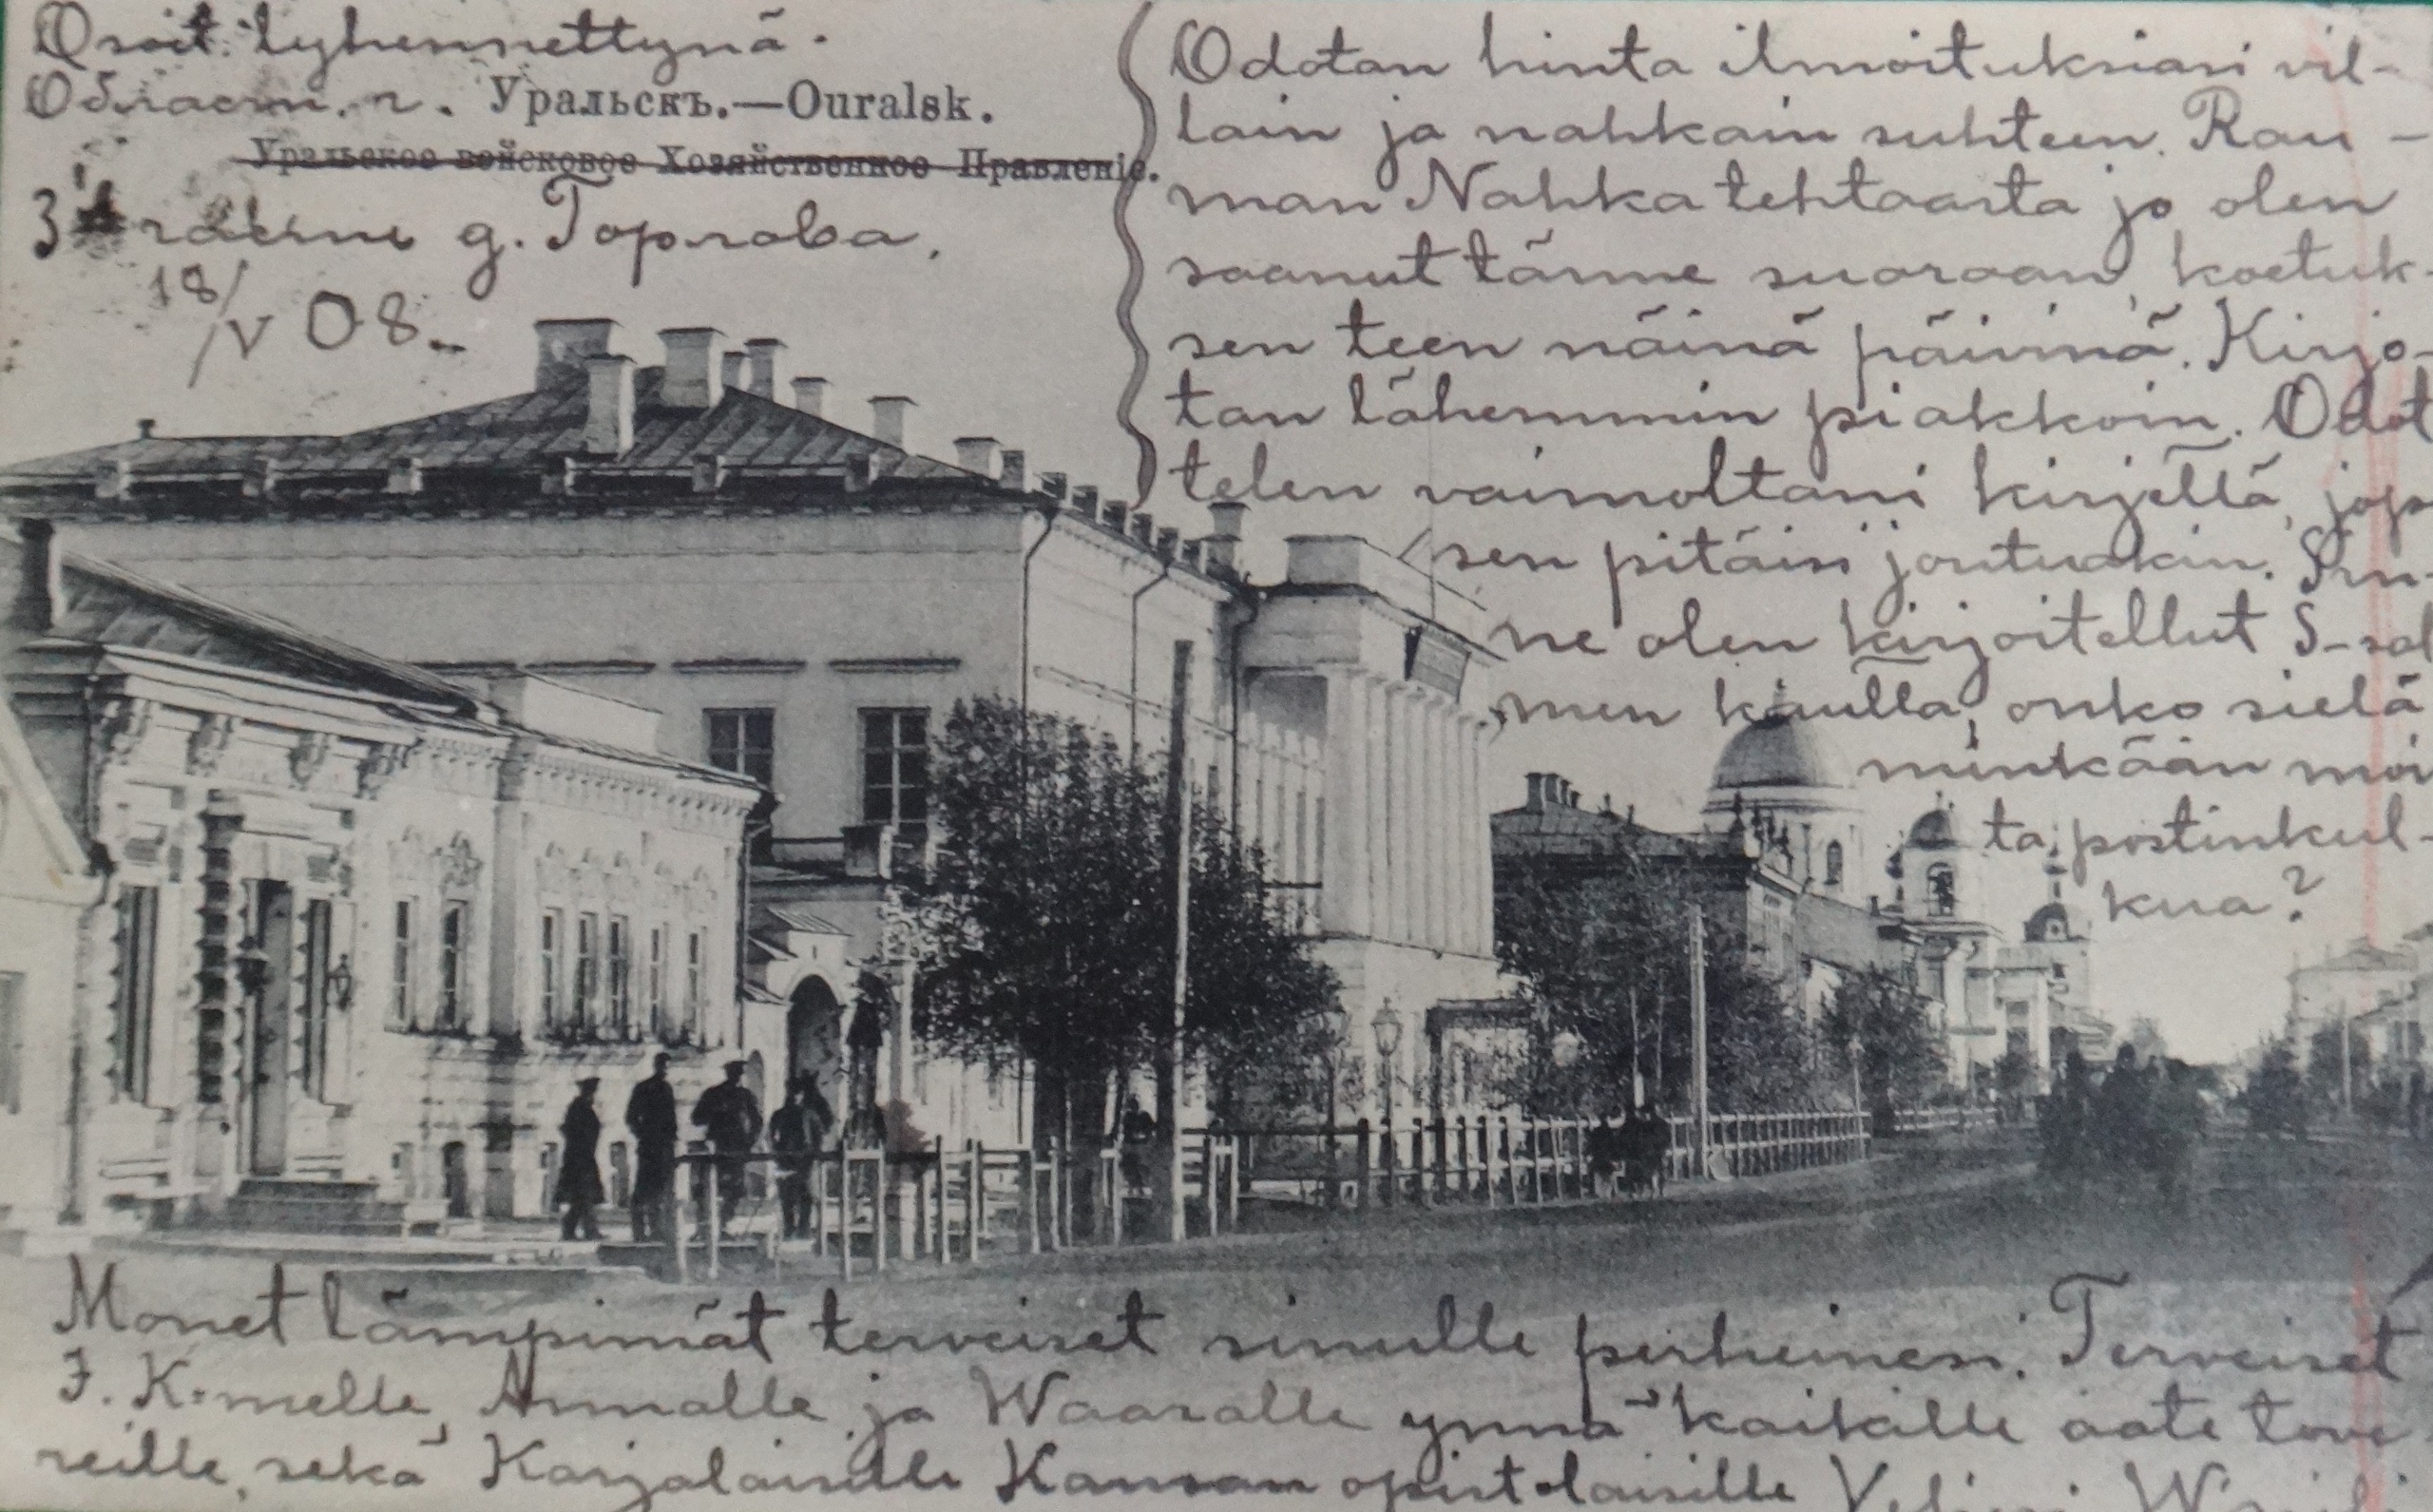 Osoit. lyhennettynä.
Област. г. Уральскъ.—Ouralsk.
Уральское войсковое Хозяйственное Правленіе.
3 части д. Горлова.
18/V 08.
Odotan hinta ilmoituksiasi vil-
lain ja nahkain suhteen. Rau-
man Nahkatehtaasta jo olen
saanut tänne suoraan, koetuk-
sen teen näinä päivinä. Kirjo-
tan lähemmin piakkoin. Odot
telen vaimoltani kirjettä, jo
sen pitäisi joutuakin. Sin-
ne olen kirjoitellut S-sal
men kautta, onko sielä
minkään moi
ta postinkul-
kua?
Monet lämpimät terveiset sinulle perheinesi. Terveiset
J. K:nelle, Annalle ja Waaralle ynnä kaikille aate tove
reille, sekä Karjalaisille Kansan opistolaisille